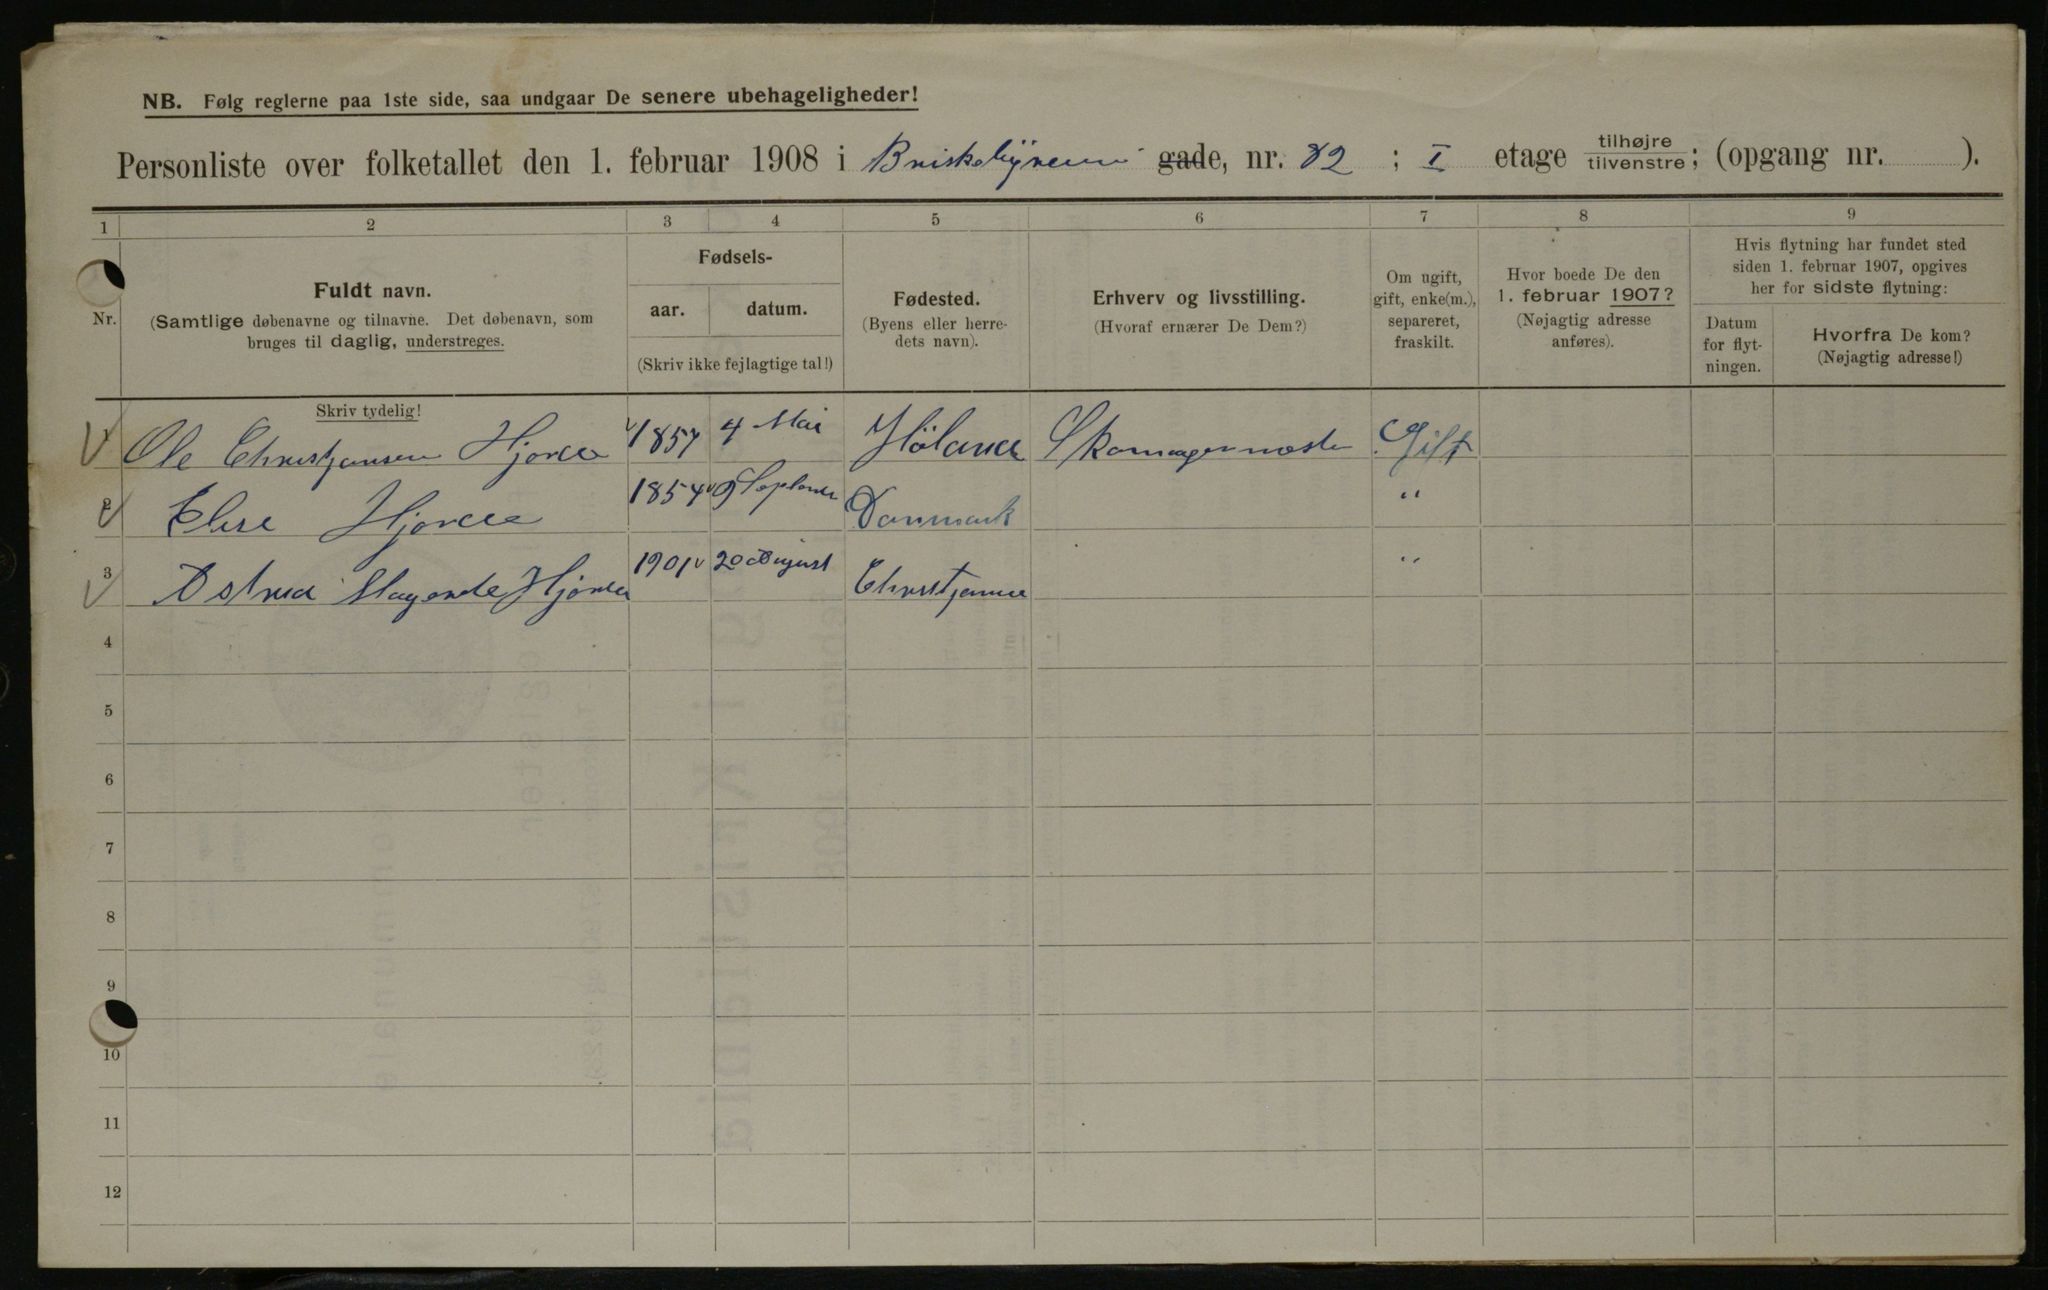 NB. Følg reglerne paa 1ste side, saa undgaar De senere ubehageligheder!
Personliste over folketallet den 1. februar 1908 i Briskebyveien gade, nr. 82 ; I etage tilhøjre tilvenstre; (opgang nr. ).
1 2 3 4 5 6 7 8 9
Nr.
Fuldt navn.
(Samtlige døbenavne og tilnavne. Det døbenavn, som
bruges til daglig, understreges.
Skriv tydelig!
Fødsels-
aar. datum.
(Skriv ikke fejlagtige tal!)
Fødested.
(Byens eller herre-
dets navn).
Erhverv og livsstilling.
(Hvoraf ernærer De Dem?)
Om ugift,
gift, enke(m.),
separeret,
fraskilt.
Hvor boede De den
1. februar 1907?
(Nøjagtig adresse
anføres).
Hvis flytning har fundet sted
siden 1. februar 1907, opgives
her for sidste flytning:
Datum
for flyt-
ningen.
Hvorfra De kom?
(Nøjagtig adresse!)
1 Ole Christjansen 1857 4 Mai Høland Skomagermester Gift
2 Elise 1854 9 September Danmark "
3 Astrid 1901 20 August Christjania "
4
5
6
7
8
9
10
11
12